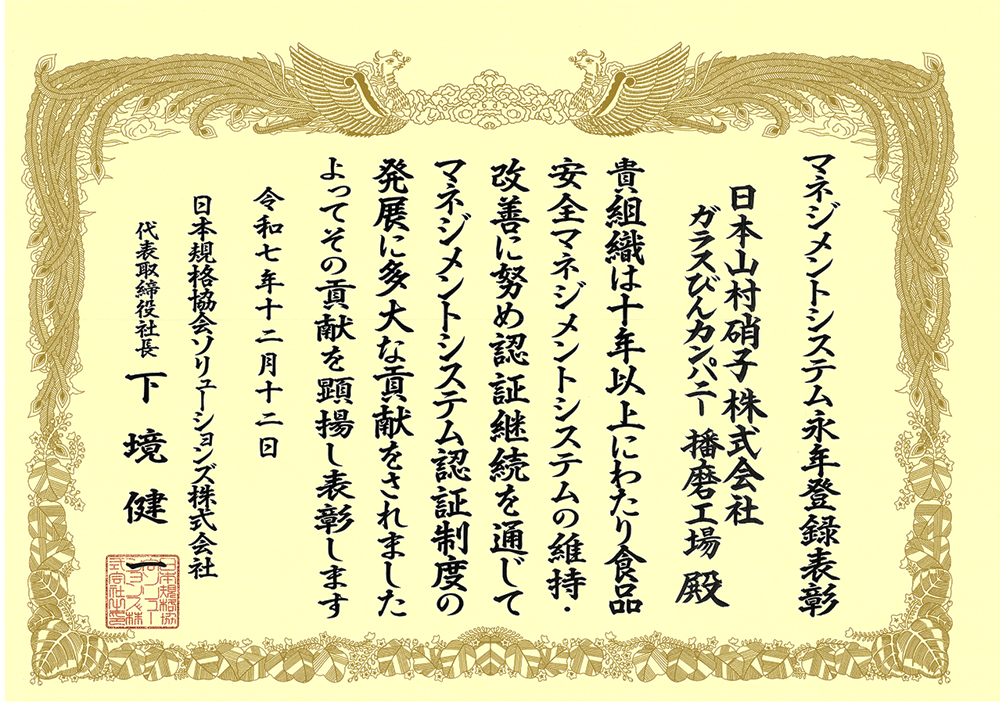 マネジメントシステム永年登録表彰
日本山村硝子株式会社
ガラスびんカンパニー 播磨工場 殿
貴組織は十年以上にわたり食品
安全マネジメントシステムの維持・
改善に努め認証継続を通じて
マネジメントシステム認証制度の
発展に多大な貢献をされました
よってその貢献を顕揚し表彰します
令和七年十二月十二日
日本規格協会ソリューションズ株式会社
代表取締役社長 下境健一